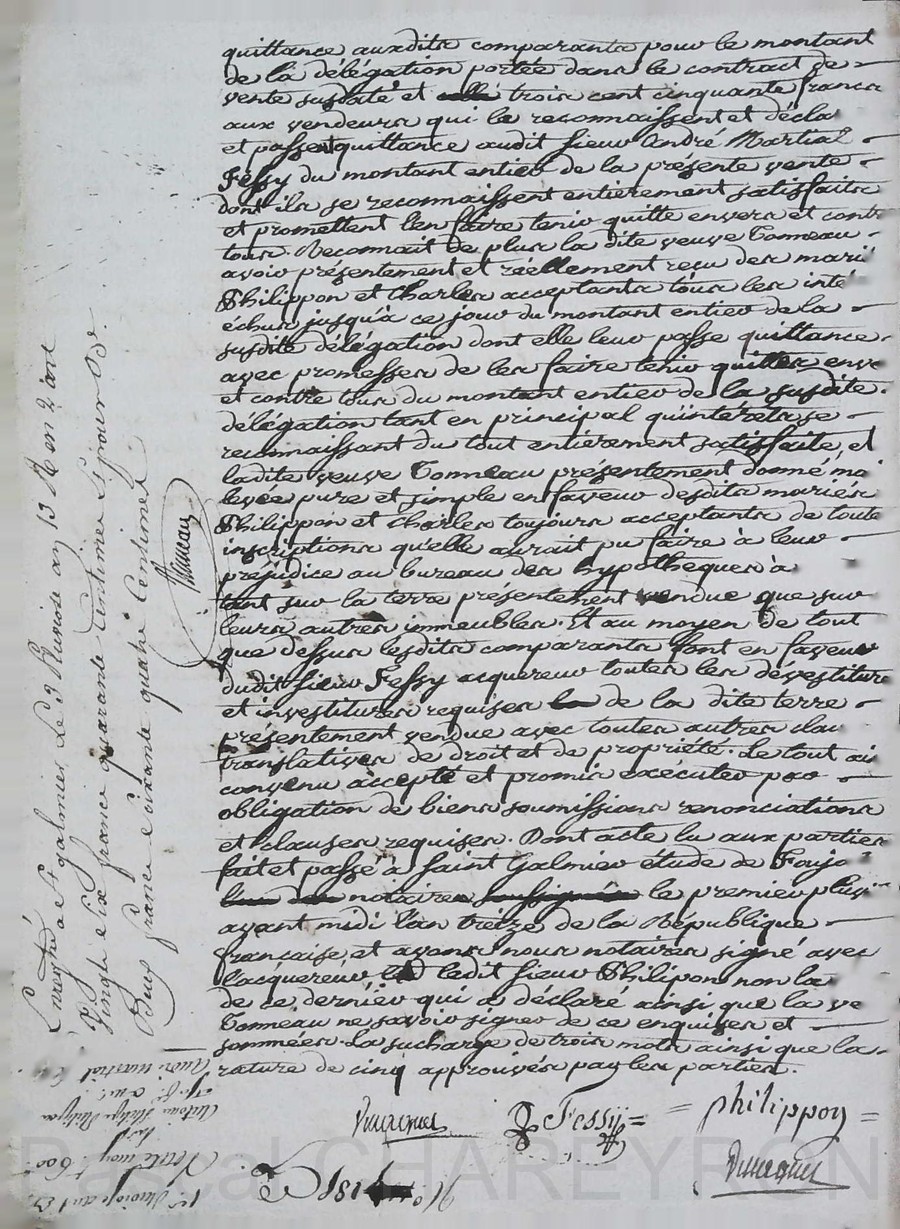 quittance auxdits comparants pour le montant
de la délégation portée dans le contract de
vente susdaté et trois cent cinquante francs
aux vendeurs qui le reconnaissent et décla
et passent quittance audit sieur André Martial
Fessy du montant entier de la présente vente
dont ils se reconnaissent entièrement satisfaits
et promettent l'en faire tenir quitte envers et contre
tous. Reconnait de plus la dite veuve Tonneau
avoir présentement et réellement reçu des marié
Philippon et Charles acceptants tous les inté
échus jusqu'à ce jour du montant entier de la
susdite délégation dont elle leur passe quittance
avec promesses de les faire tenir quittes enve
et contre tous du montant entier de la susdite
délégation tant en principal qu'interets se
reconnaissant du tout entièrement satisfaite, et
ladite veuve Tonneau présentement donné ma
levée pure et simple en faveur desdits mariés
Philippon et Charles toujours acceptants de toute
inscriptions qu'elle aurait pu faire à leur
préjudice au bureau des hypotheques à
tant sur la terre présentement vendue que sur
leurs autres immeubles. Et au moyen de tout
que dessus lesdits comparants font en faveur
dudit sieur Fessy acquereur toutes les dévestiture
et investitures requises de la dite terre
présentement vendue avec toutes autres clau
translatives de droit et de propriété. Le tout ai
convenu accepté et promis exécuter par
obligation de biens soumissions renonciations
et clauses requises. Dont acte lu aux parties
fait et passé à Saint Galmier étude de
notaires le premier pluvi
avant midi l'an treize de la République
française, et avons nous notaires signé avec
l'acquereur ledit sieur Philipon non la
de ce dernier qui a déclaré ainsi que la ve
Tonneau ne savoir signer de ce enquises et
sommées. La sucharge de trois mots ainsi que la
rature de cinq approuvés par les parties.
Fessy
philippon
Enregistré à St galmier Le 9 Pluviose an 13 en 2 art
Vingt six francs quarante centimes
francs soixante quatre centimes
Pascal CHAREYRON